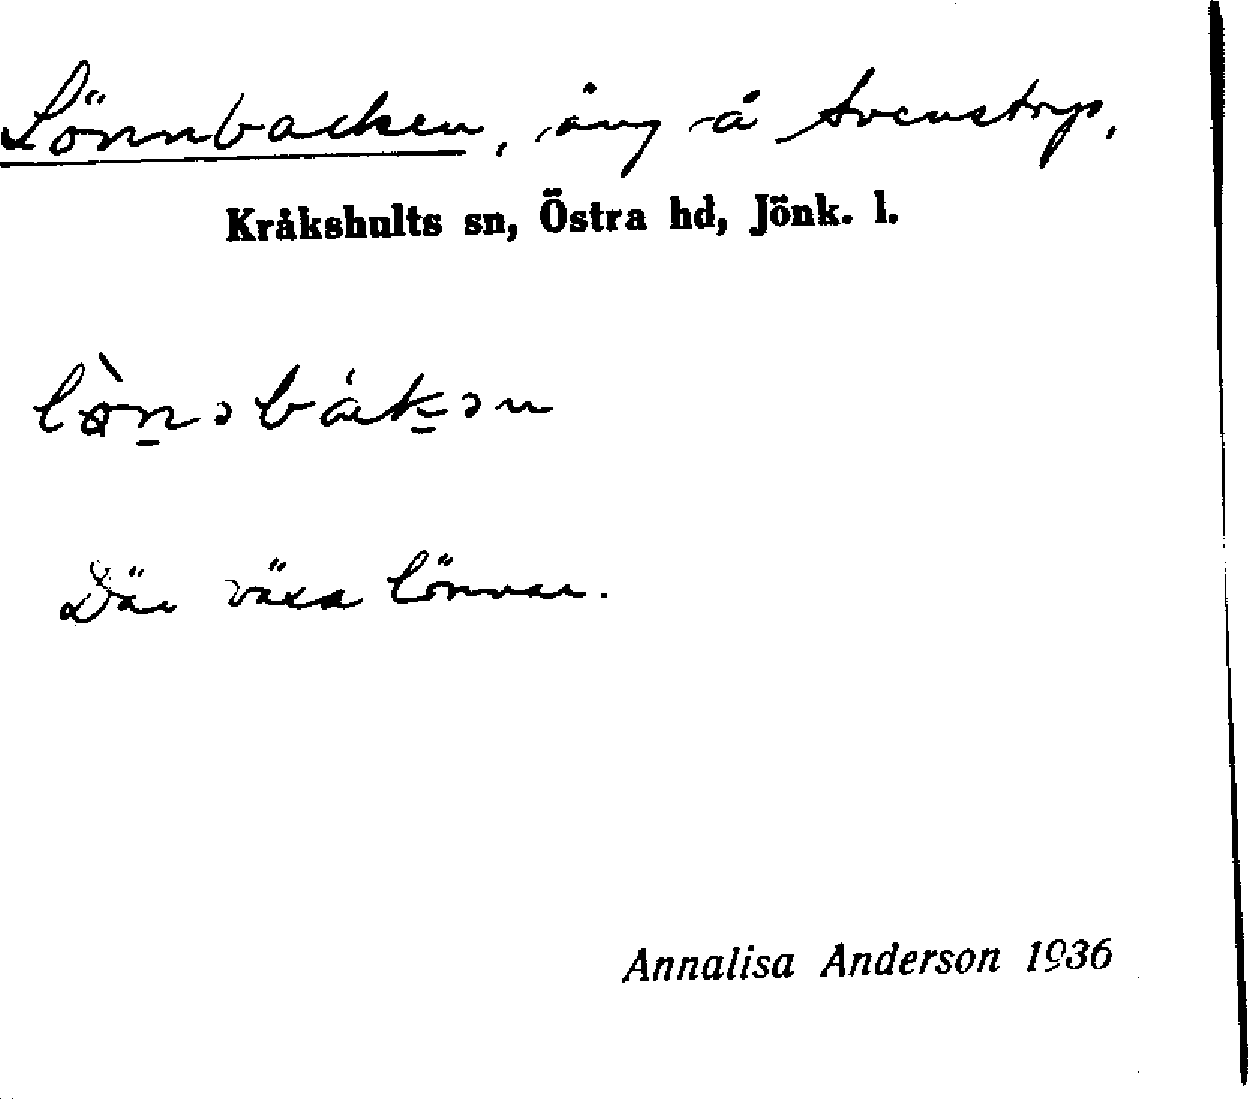 Lönnbacken, äng å Svenstryp,
Kråkshults sn, Östra hd, Jönk. l.
Där växa lönnar.
Annalisa Anderson 1936